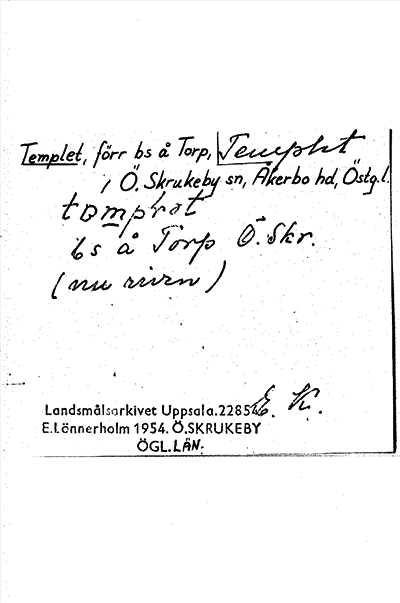 Templet, förr bs å Torp, Templet
i Ö. Skrukeby sn, Åkerbo hd, Östg.l.
bs å Torp Ö. Skr.
(nu riven)
E. K.
Landsmålsarkivet Uppsala. 2285
E. Lönnerholm 1954. Ö. SKRUKEBY
ÖGL. LÄN.